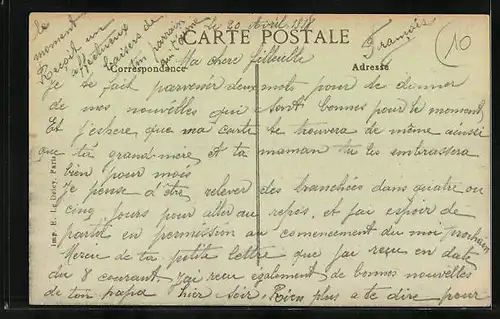 Le 20 Avril 1918
CARTE POSTALE
Correspondance
Adresse
François
10
Ma chère filleulle
Je te fait parvenir deux mots pour te donner
de mes nouvelles qui sont bonnes pour le moment
Et j'espère que ma carte te trouvera de même ainsi
que ta grand mère et ta maman tu les embrassera
bien pour mois
Je pense d'être relever des tranchées dans quatre ou
cinq jours pour aller au repos, et j'ai espoir de
partir en permission au commencement du moi prochain
Mercu de ta petite lettre que j'ai reçu en date
du 8 courant. J'ai reçu également de bonnes nouvelles
de ton papa hier soir. Rien plus a te dire pour
le
moment
Reçoit un
affectueux
baisers de
ton parrain
Imp. E. Le Deley, Paris